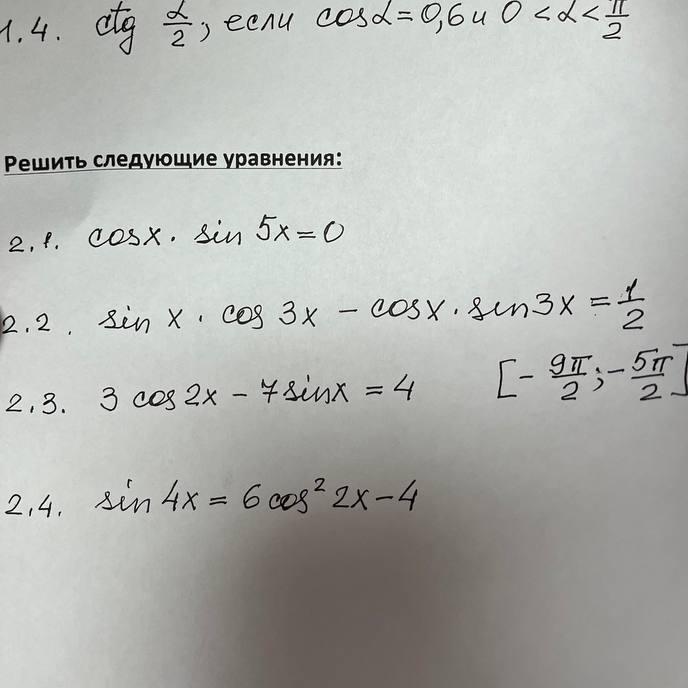 1.4. ctg α/2, если cosα=0,6 и 0<α<π/2
Решить следующие уравнения:
2.1. cosx · sin 5x=0
2.2. sin x · cos 3x − cosx · sin3x = 1/2
2.3. 3 cos2x − 7sinx = 4 [−9π/2; −5π/2]
2.4. sin 4x = 6 cos² 2x − 4